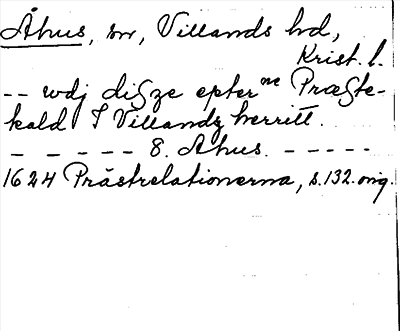 Åhus, sn, Villands hd,
Krist. l.
-- wdj diſze epterne Præſte-
kald I Villandz herritt.
- - - - - 8. Ahus. - - - - -
1624 Prästrelationerna, s. 132. orig.